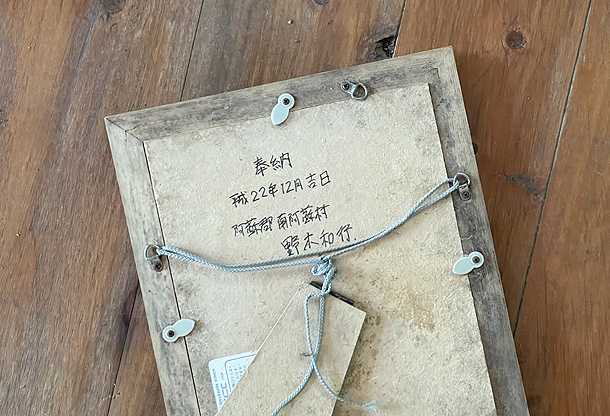 奉納
平成22年12月吉日
阿蘇郡南阿蘇村
野木和行